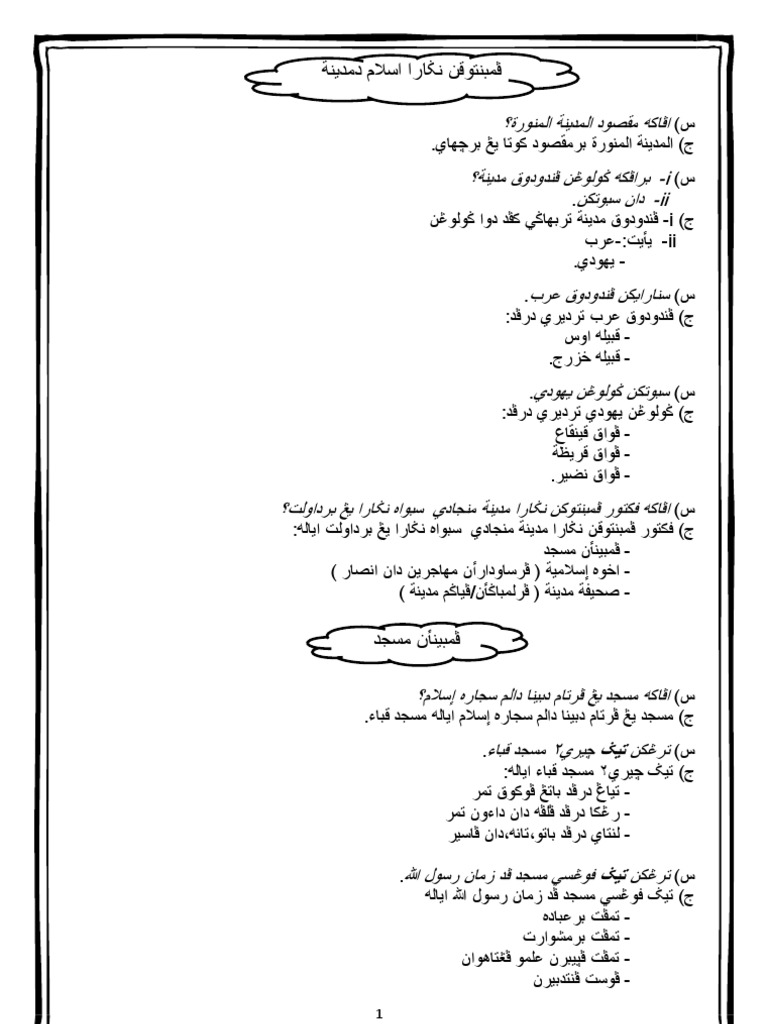 ڤمبنتوقن نݢارا اسلام دمدينة
س) اڤاكه مقصود المدينة المنورة؟
ج) المدينة المنورة برمقصود كوتا يڠ برچهاي.
س) i- براڤكه ݢولوڠن ڤندودوق مدينة؟
ii- دان سبوتكن.
ج) i- ڤندودوق مدينة تربهاݢي كڤد دوا ݢولوڠن
ii- يأيت:-عرب
- يهودي.
س) سنارايكن ڤندودوق عرب.
ج) ڤندودوق عرب ترديري درڤد:
- قبيله اوس
- قبيله خزرج.
س) سبوتكن ݢولوڠن يهودي.
ج) ݢولوڠن يهودي ترديري درڤد:
- ڤواق قينقاع
- ڤواق قريظة
- ڤواق نضير.
س) اڤاكه فكتور ڤمبنتوكن نݢارا مدينة منجادي سبواه نݢارا يڠ برداولت؟
ج) فكتور ڤمبنتوقن نݢارا مدينة منجادي سبواه نݢارا يڠ برداولت اياله:
- ڤمبينأن مسجد
- اخوه إسلامية ( ڤرساودارأن مهاجرين دان انصار )
- صحيفة مدينة ( ڤرلمباݢأن/ڤياݢم مدينة )
ڤمبينأن مسجد
س) اڤاكه مسجد يڠ ڤرتام دبينا دالم سجاره إسلام؟
ج) مسجد يڠ ڤرتام دبينا دالم سجاره إسلام اياله مسجد قباء.
س) ترڠكن تيݢ چيري٢ مسجد قباء.
ج) تيݢ چيري٢ مسجد قباء اياله:
- تياڠ درڤد باتڠ ڤوكوق تمر
- رڠكا درڤد ڤلڤه دان داءون تمر
- لنتاي درڤد باتو،تانه،دان ڤاسير
س) ترڠكن تيݢ فوڠسي مسجد ڤد زمان رسول الله.
ج) تيݢ فوڠسي مسجد ڤد زمان رسول الله اياله
- تمڤت برعباده
- تمڤت برمشوارت
- تمڤت ڤڽيبرن علمو ڤڠتاهوان
- ڤوست ڤنتدبيرن
1